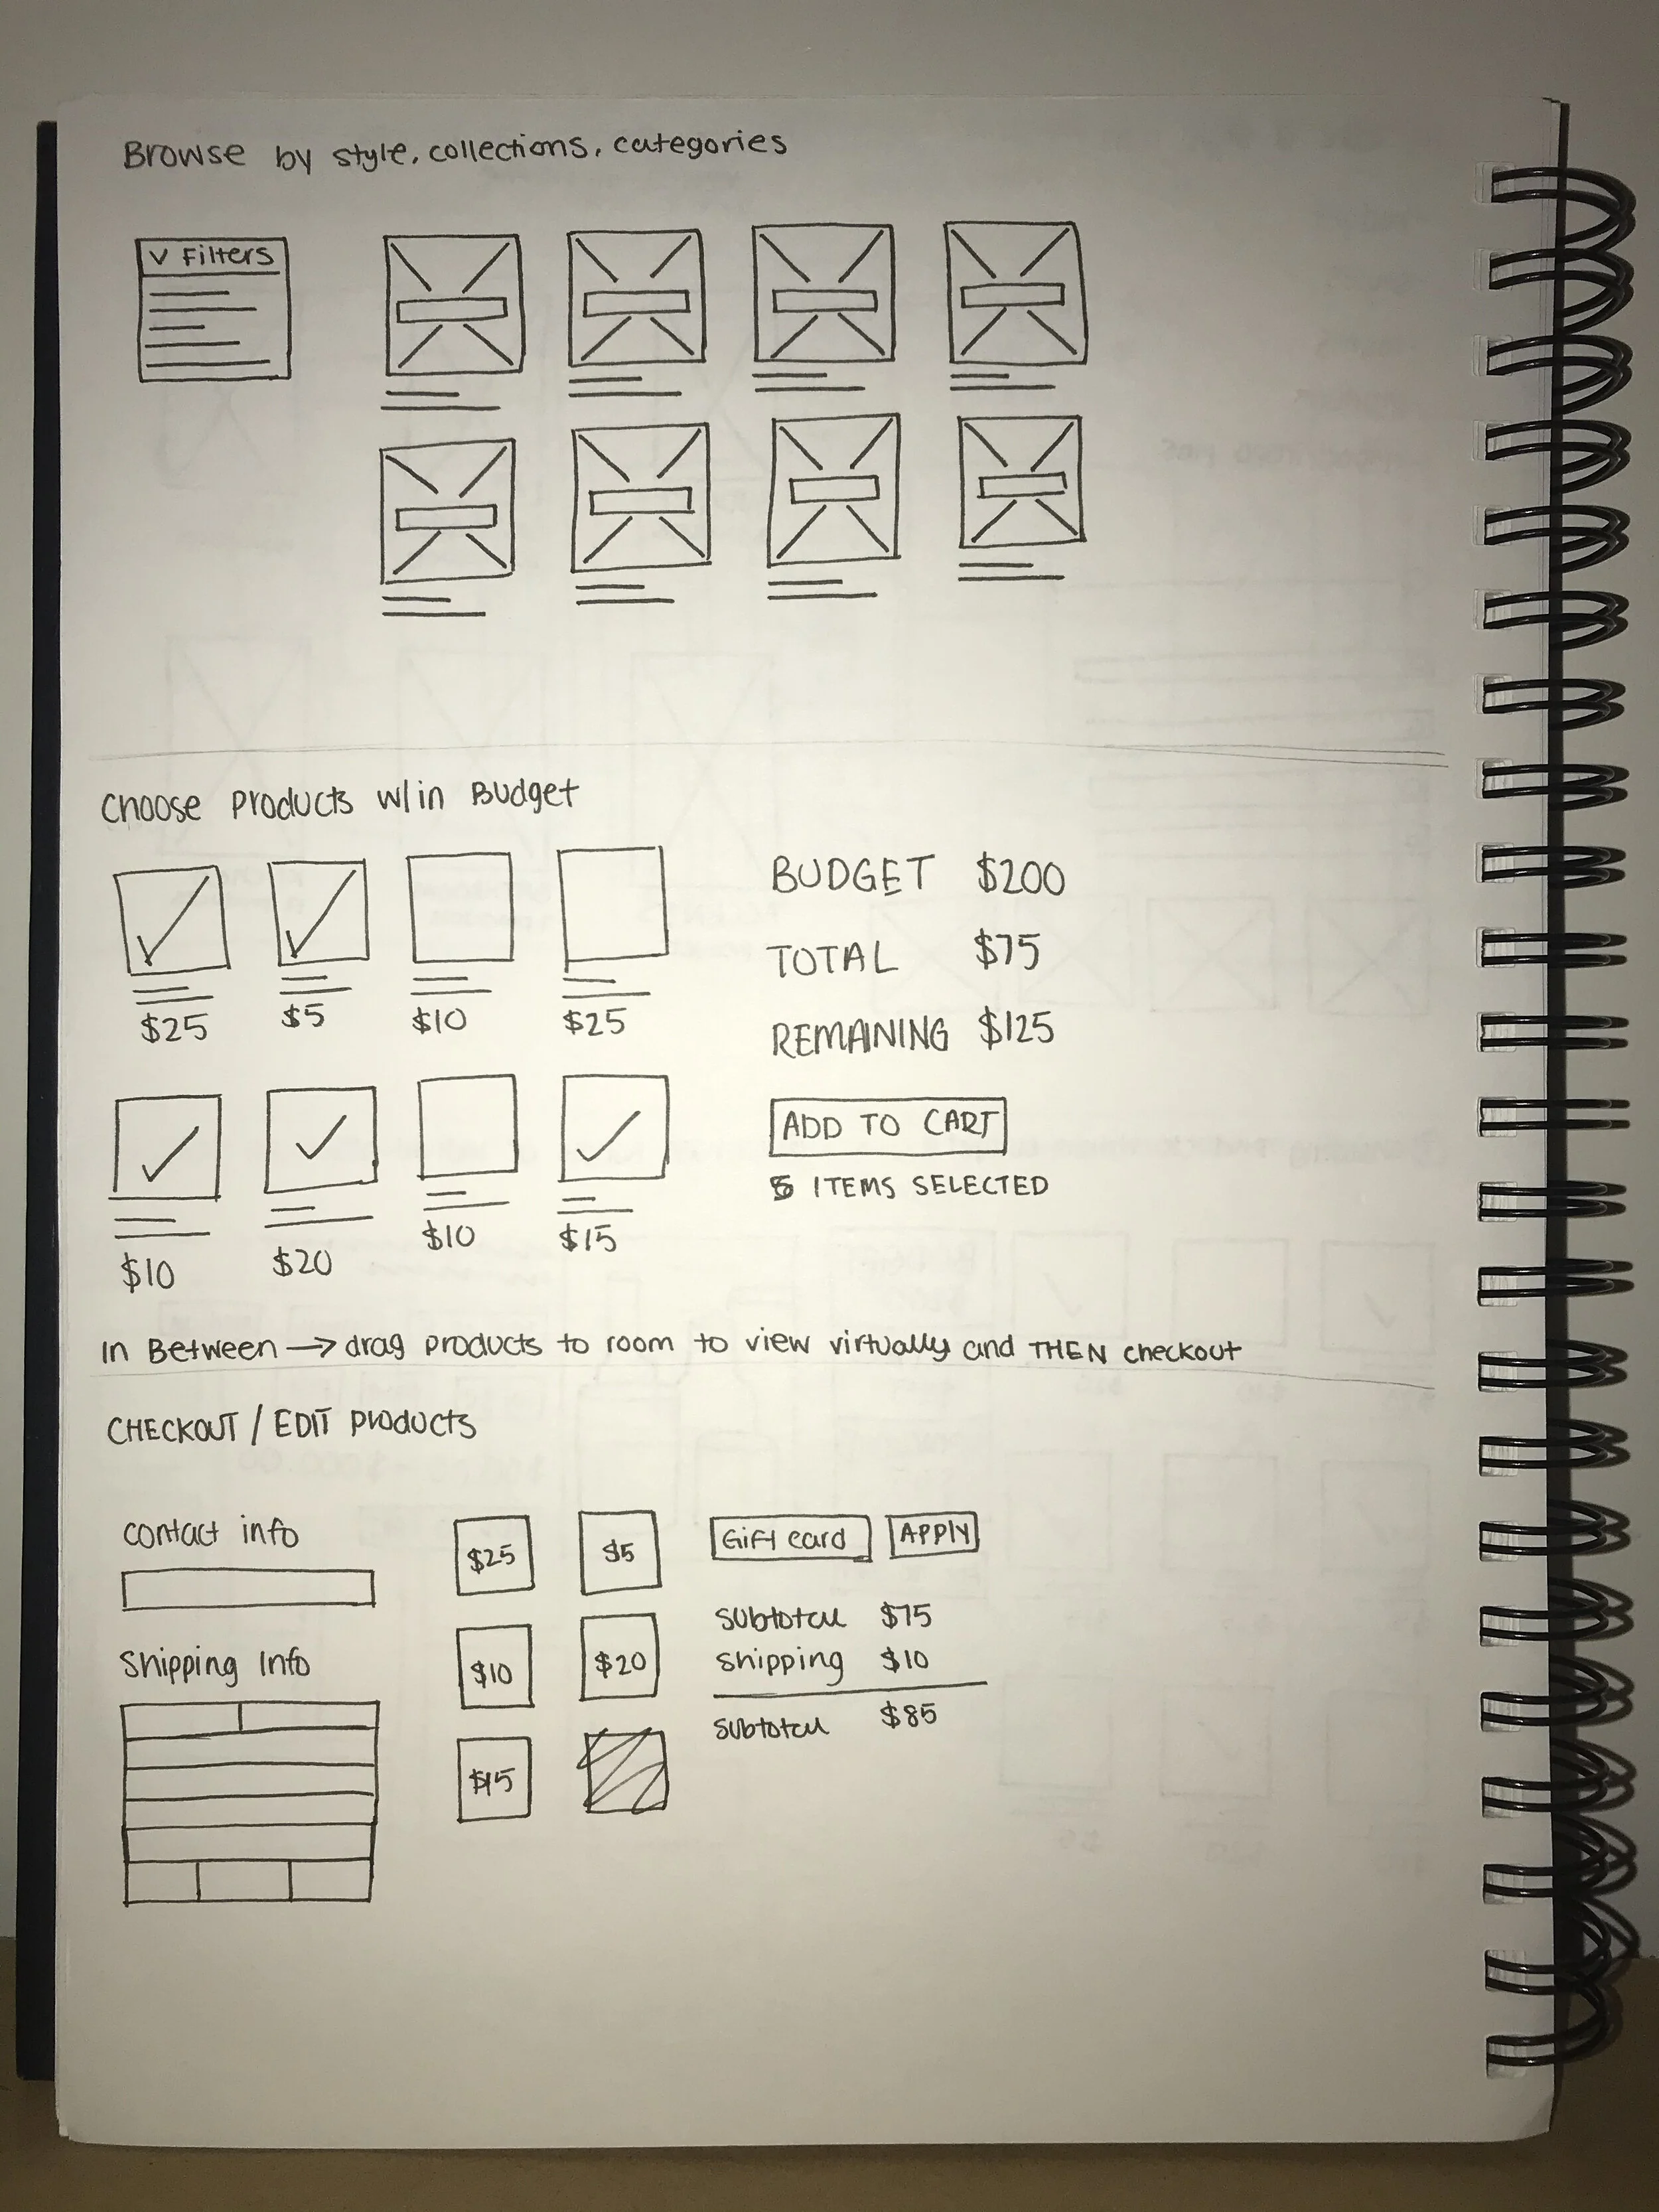 Browse by style, collections, categories
V Filters
Choose products w/in Budget
$25 $5 $10 $25
$10 $20 $10 $15
BUDGET $200
TOTAL $75
REMAINING $125
ADD TO CART
5 ITEMS SELECTED
In Between → drag products to room to view virtually and THEN checkout
CHECKOUT / EDIT Products
Contact info
Shipping Info
$25 $5
$10 $20
$15
Gift card APPLY
subtotal $75
shipping $10
subtotal $85